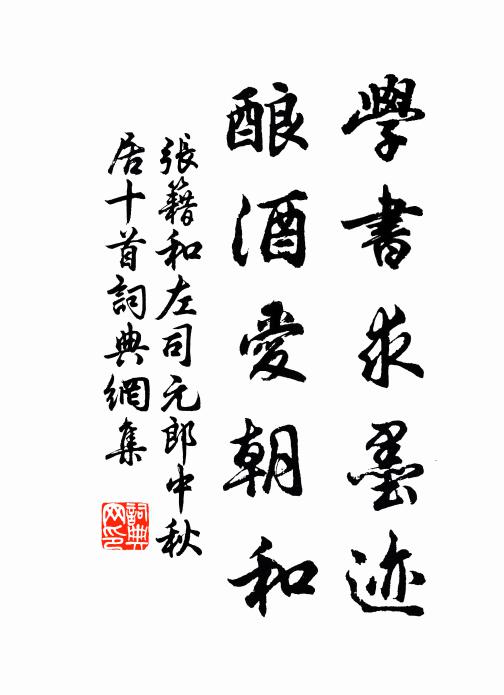 學書求墨迹
酿酒愛朝和
張籍和左司元郎中秋
居十首詞典網集
詞典
网印